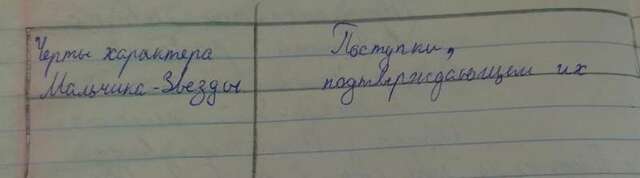 Черты характера
Мальчика-Звезды
Поступки,
подтверждающем их